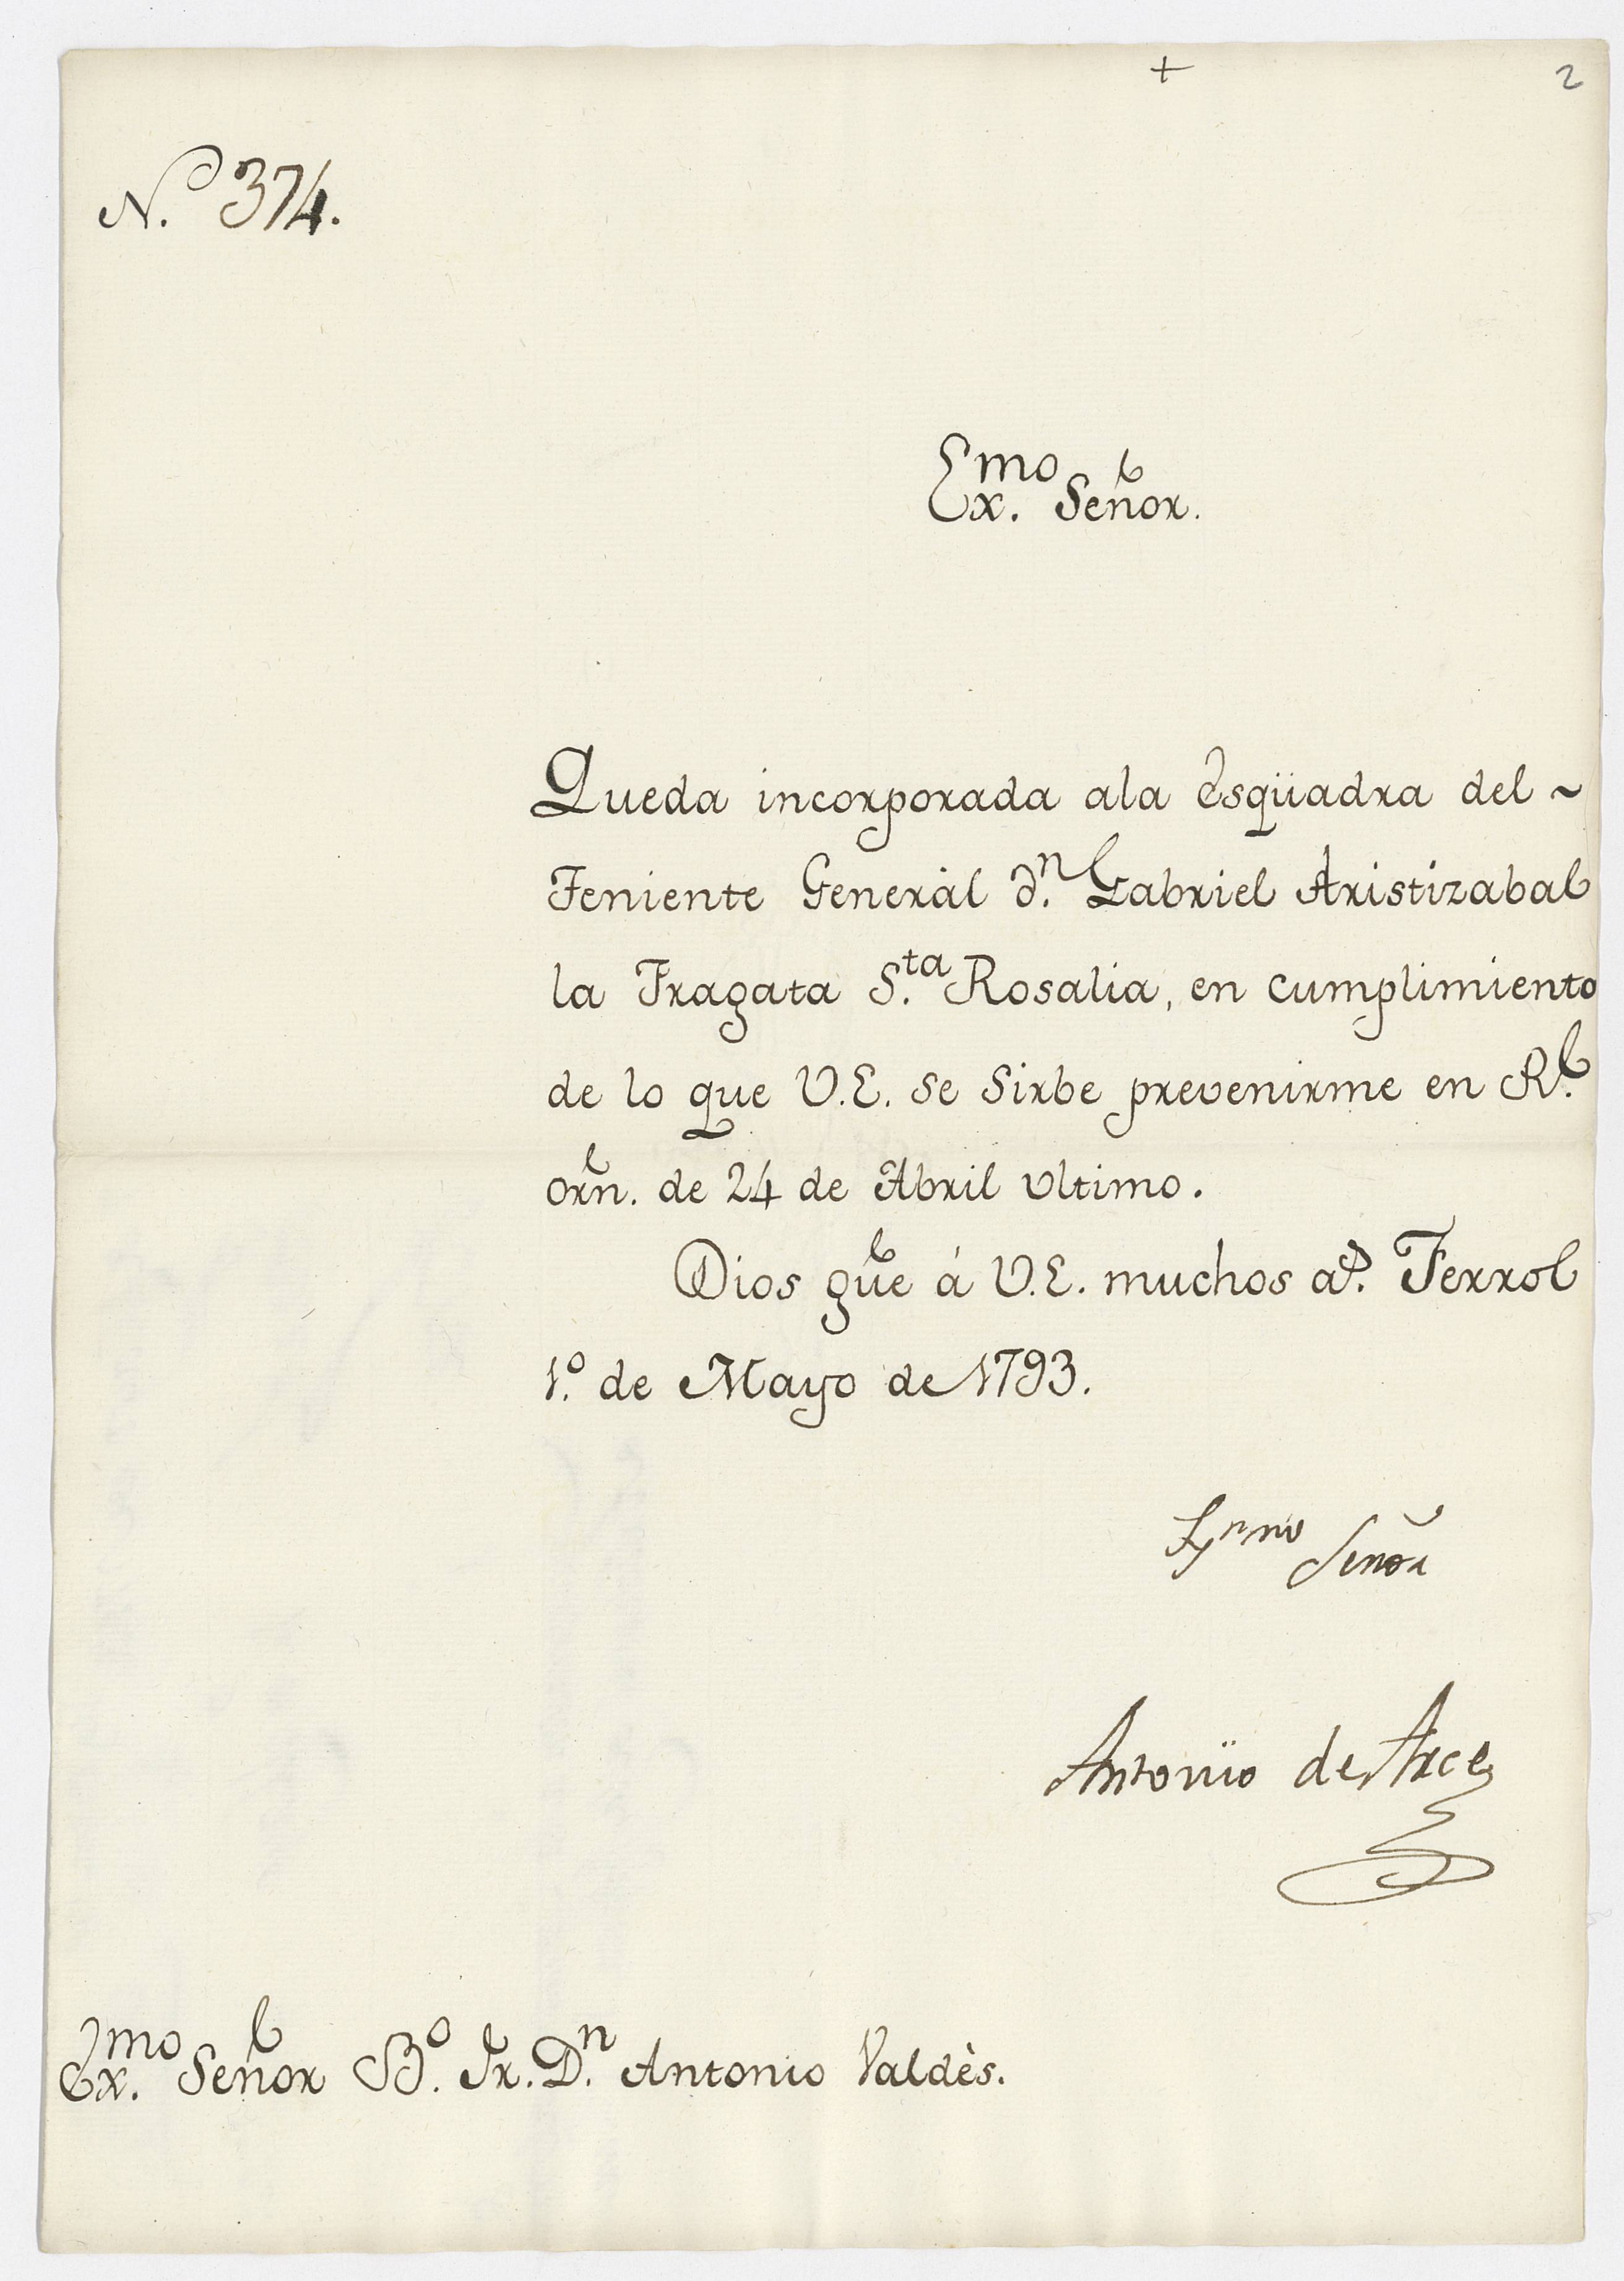 + 2
N.º 374.
Ex.mo Señor.
Queda incorporada ala Esqüadra del ~
Teniente General d.n Gabriel Aristizabal
la Fragata S.ta Rosalia, en cumplimiento
de lo que V.E. se sirbe prevenirme en R.l
orn. de 24 de Abril ultimo.
Dios gue á V.E. muchos a.s Ferrol
1.º de Mayo de 1793.
Exmo Señor
Antonio de Arce
Ex.mo Señor B.º Fr. D.n Antonio Valdès.